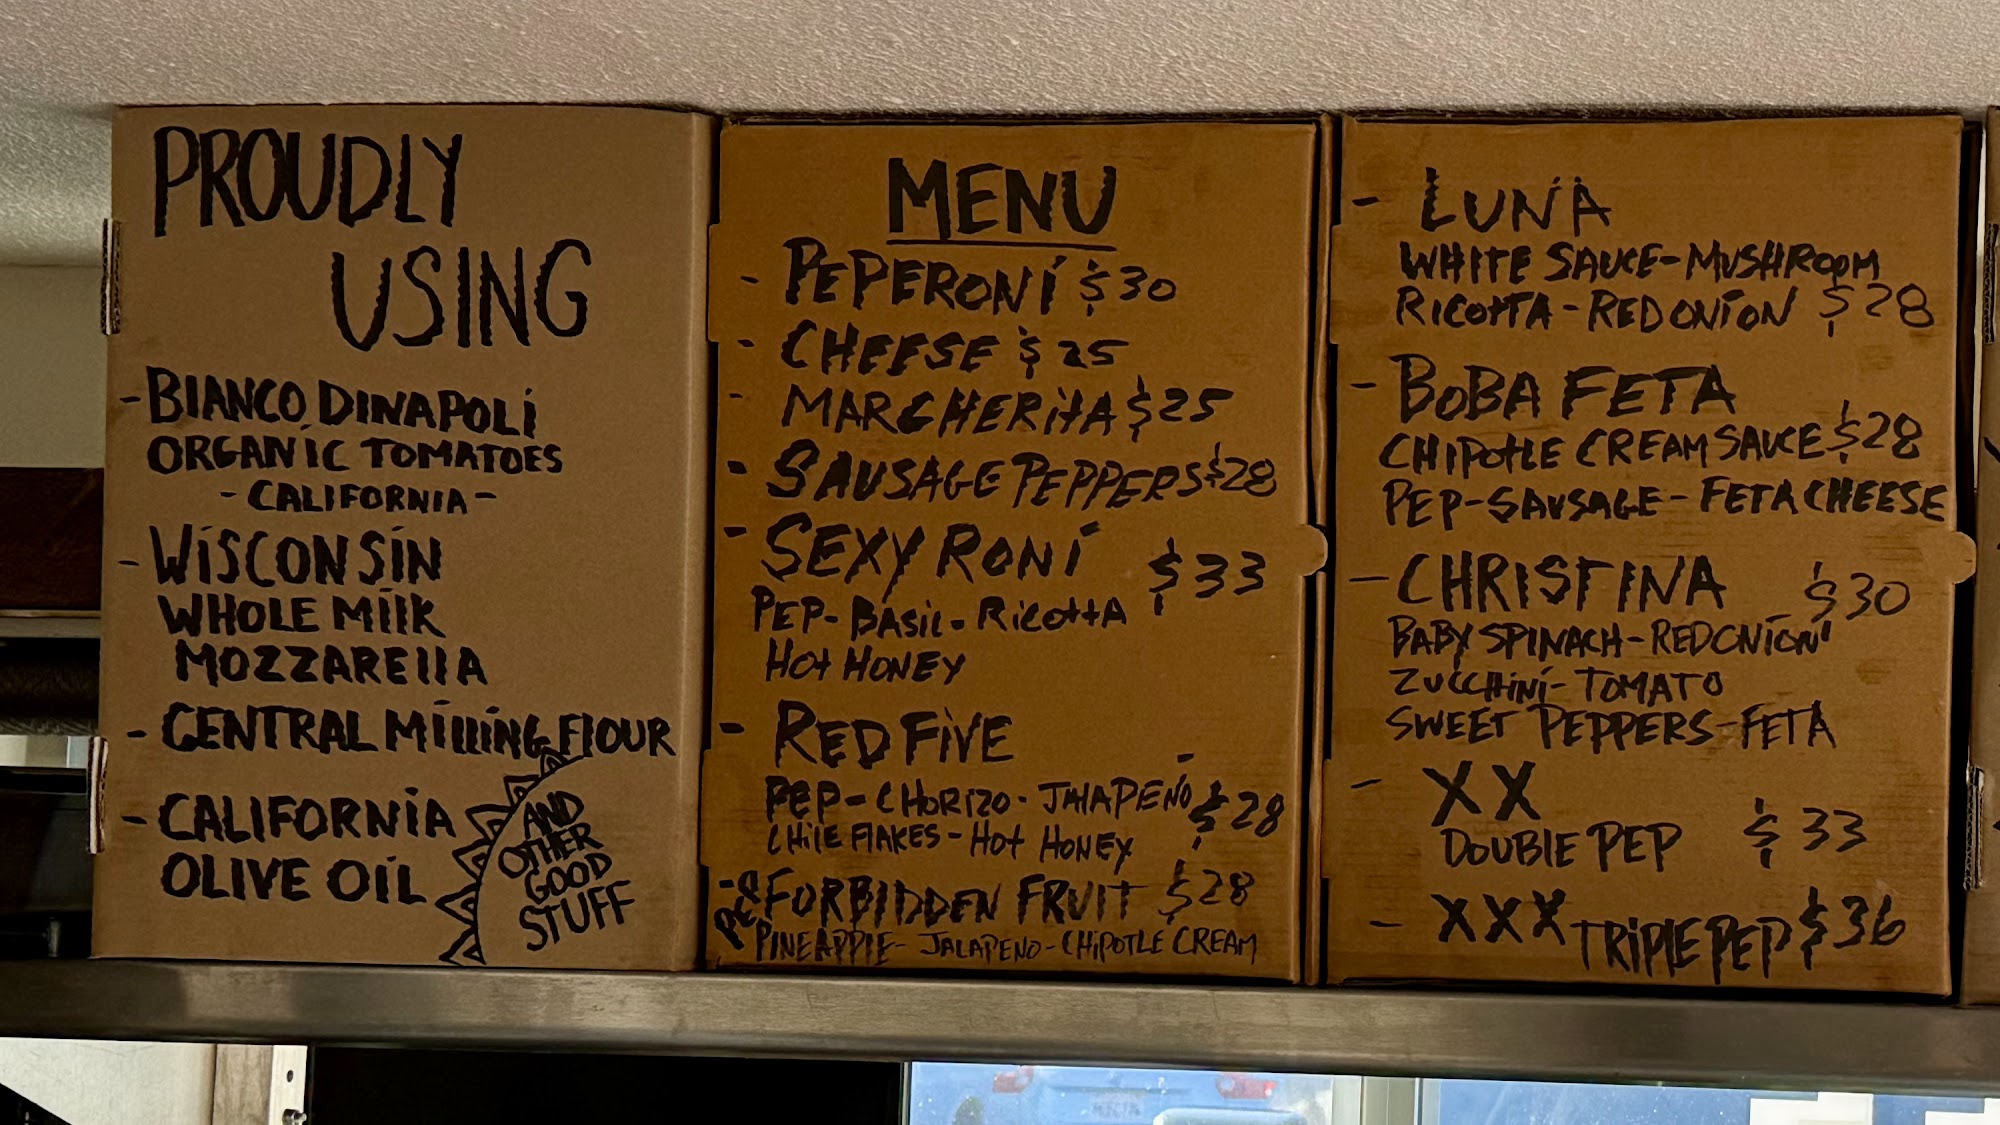 PROUDLY
USING
- BIANCO DINAPOLI
ORGANIC TOMATOES
- CALIFORNIA -
- WISCONSIN
WHOLE MILK
MOZZARELLA
- CENTRAL MILLING FLOUR
- CALIFORNIA
OLIVE OIL
AND
OTHER
GOOD
STUFF
MENU
- PEPERONI $30
- CHEESE $25
- MARGHERITA $25
- SAUSAGE PEPPERS $28
- SEXY RONI $33
PEP - BASIL - RICOTTA
HOT HONEY
- RED FIVE
PEP - CHORIZO - JALAPEÑO $28
CHILE FLAKES - HOT HONEY
- FORBIDDEN FRUIT $28
PEP
PINEAPPLE - JALAPENO - CHIPOTLE CREAM
- LUNA
WHITE SAUCE - MUSHROOM
RICOTTA - RED ONION $28
- BOBA FETA
CHIPOTLE CREAM SAUCE $28
PEP - SAUSAGE - FETA CHEESE
- CHRISTINA $30
BABY SPINACH - RED ONION
ZUCCHINI - TOMATO
SWEET PEPPERS - FETA
- XX
DOUBLE PEP $33
- XXX TRIPLE PEP $36